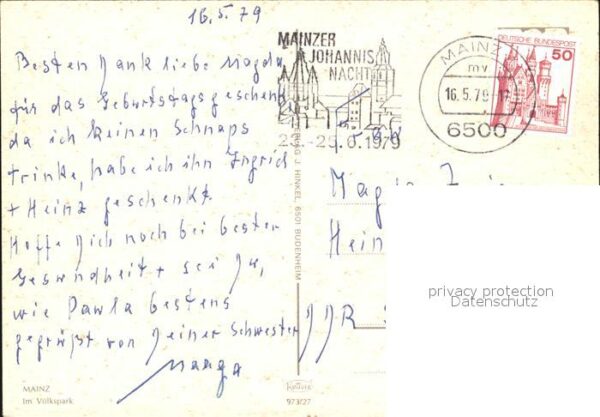 16.5.79
Besten Dank liebe Magda
für das Geburtstagsgeschenk
da ich keinen Schnaps
trinke, habe ich ihn Ingrid
+ Heinz geschenkt.
Hoffe Dich noch bei bester
Gesundheit + sei Du,
wie Pawla bestens
gegrüßt von Deiner Schwester
MAINZ
Im Volkspark
MAINZER
JOHANNIS
NACHT
1979
MAINZ
mv
16.5.79
6500
DEUTSCHE BUNDESPOST
50
J. HINKEL, 6501 BUDENHEIM
973/27
privacy protection
Datenschutz